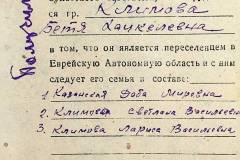 ся гр. Климова
Бетя Хацкелевна
в том, что он является переселенцем в
Еврейскую Автономную область и с ним
следует его семья в составе:
1. Казанская Доба Мировна
2. Климова Светлана Васильевна
3. Климова Лариса Васильевна